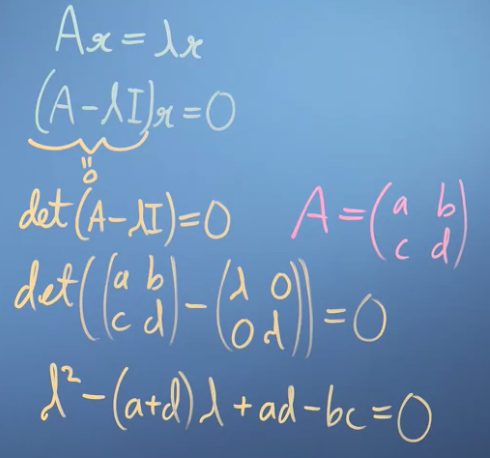 Ax = λx
(A-λI)x = 0
=0
det(A-λI)=0
A = (a b
c d)
det((a b
c d) - (λ 0
0 λ)) = 0
λ²-(a+d)λ+ad-bc=0